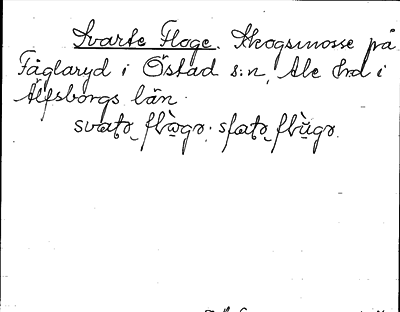 Svarte Floge. Skogsmosse på
Fåglaryd i Östad s:n, Ale hd i
Älfsborgs län.
svatə flògə. sfatə flùgə.